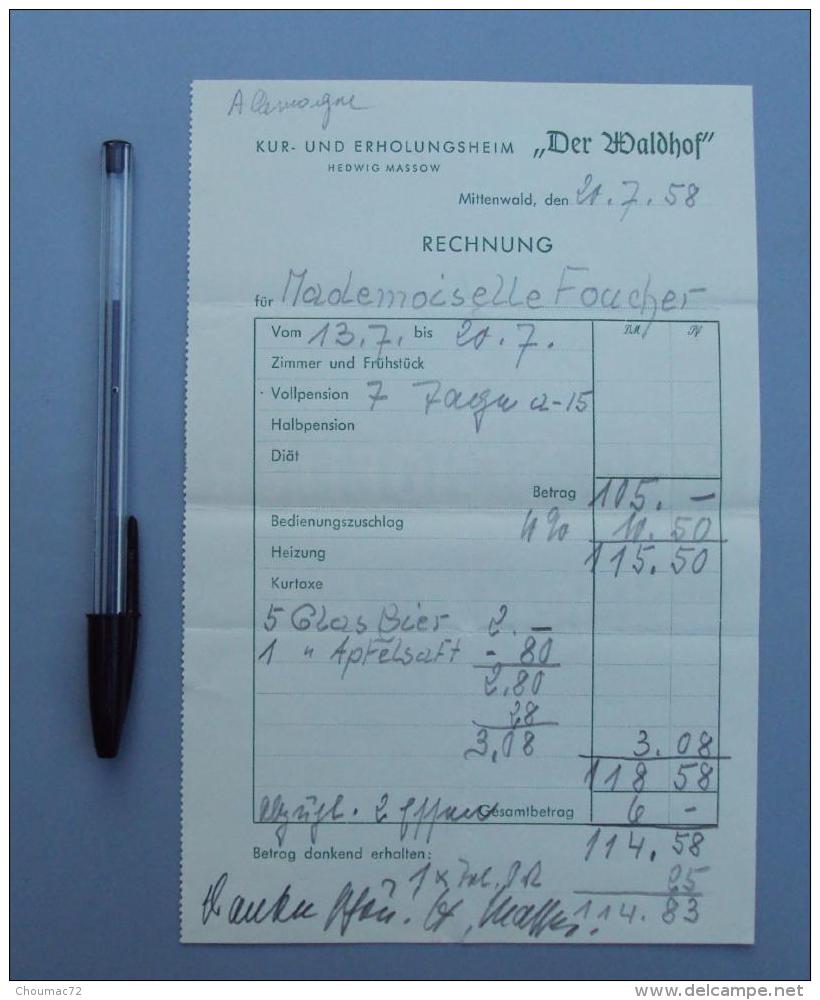 Allemagne
KUR- UND ERHOLUNGSHEIM „Der Waldhof"
HEDWIG MASSOW
Mittenwald, den 20.7.58
RECHNUNG
für Mademoiselle Foucher
DM Pf
Vom 13.7. bis 20.7.
Zimmer und Frühstück
Vollpension 7 Tage a-15
Halbpension
Diät
Betrag 105.-
Bedienungszuschlag 10.50
Heizung 115.50
Kurtaxe
5 Glas Bier 2.-
1 " Apfelsaft -80
2,80
28
3,08 3.08
118 58
abzügl. 2 Essen Gesamtbetrag 6 -
114.58
Betrag dankend erhalten:
1 x 25
Danke 114.83
Choumac72
delcampe.net